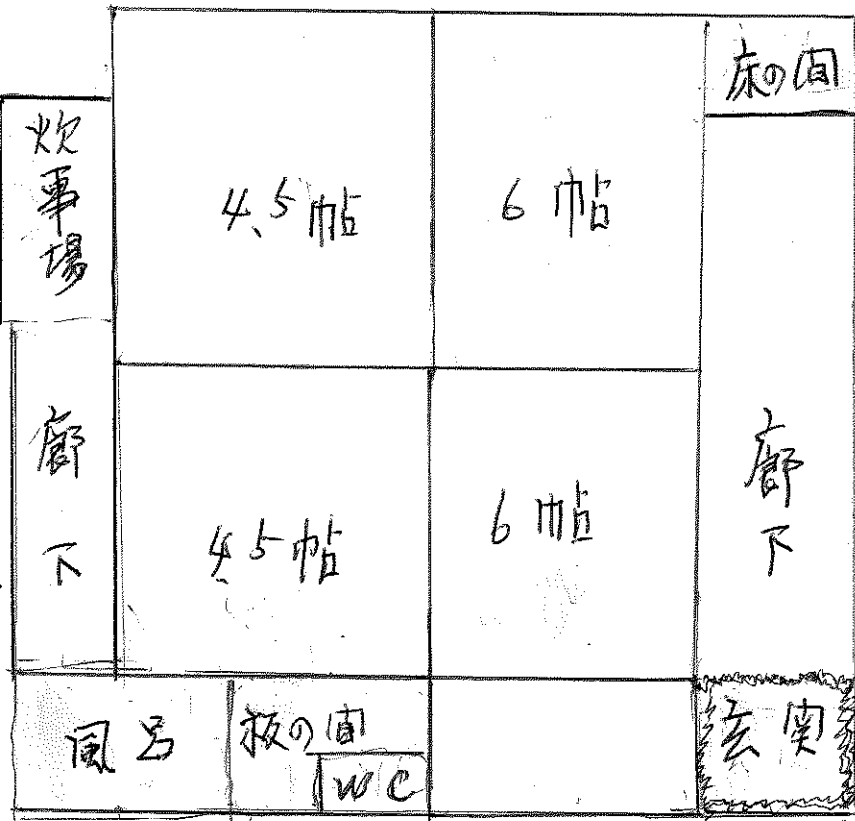 床の間
炊事場
4.5帖
6帖
廊下
廊下
4.5帖
6帖
風呂
板の間
WC
玄関